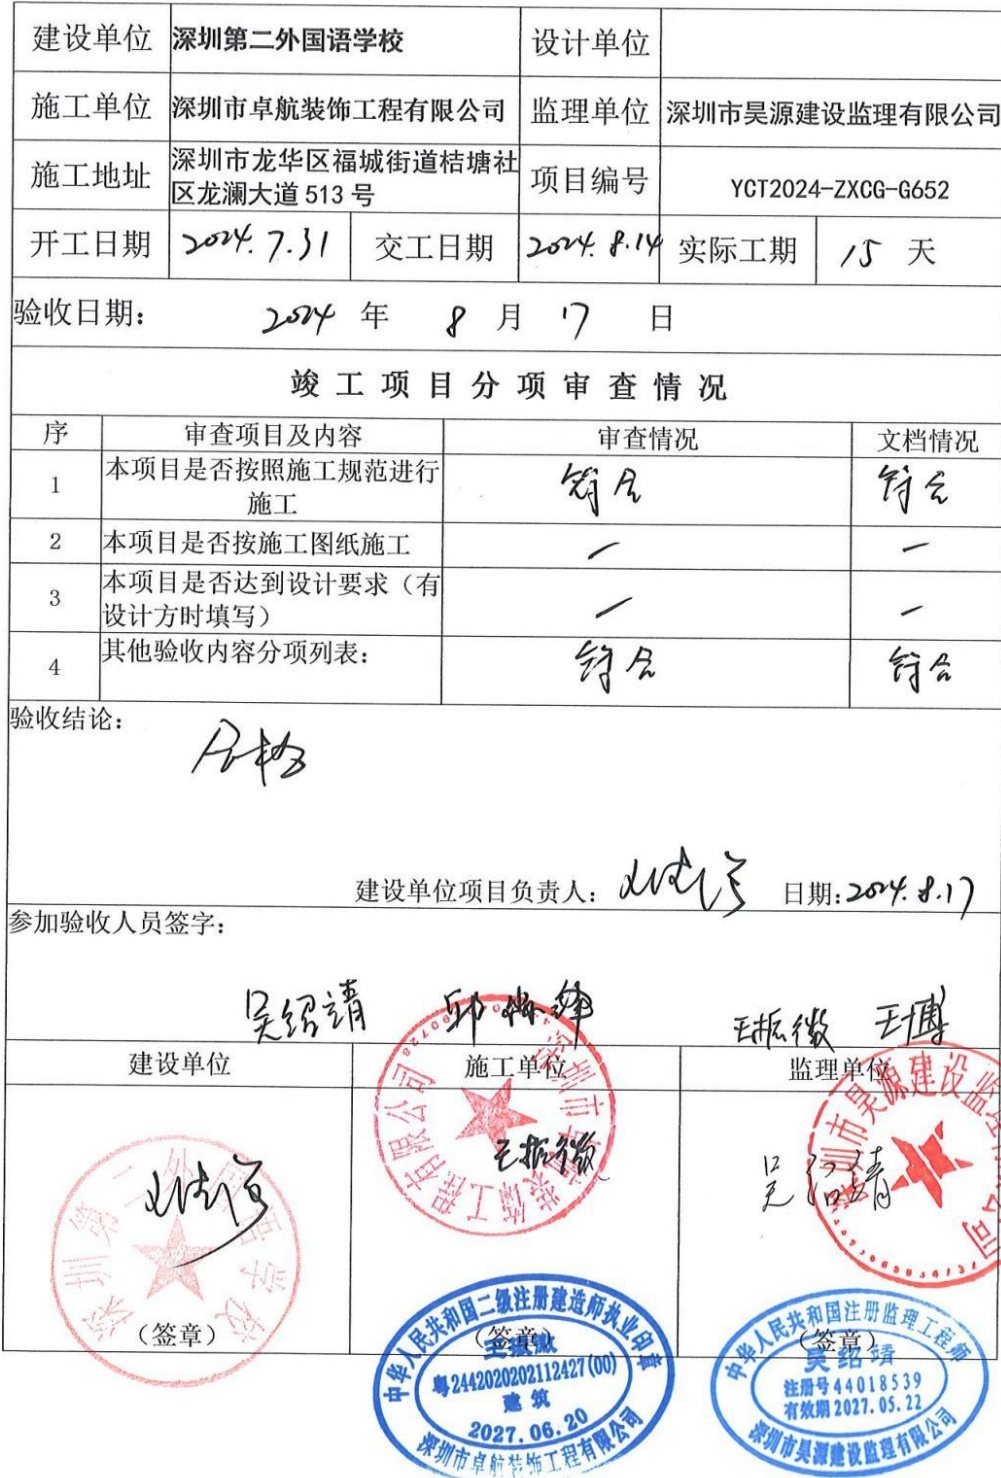 建设单位 深圳第二外国语学校 设计单位
施工单位 深圳市卓航装饰工程有限公司 监理单位 深圳市昊源建设监理有限公司
施工地址 深圳市龙华区福城街道桔塘社
区龙澜大道513号 项目编号 YCT2024-ZXCG-G652
开工日期 2024.7.31 交工日期 2024.8.14 实际工期 15 天
验收日期: 2024 年 8 月 17 日
竣工项目分项审查情况
序 审查项目及内容 审查情况 文档情况
1 本项目是否按照施工规范进行
施工 符合 符合
2 本项目是否按施工图纸施工 — —
3 本项目是否达到设计要求(有
设计方时填写) — —
4 其他验收内容分项列表: 符合 符合
验收结论:
合格
建设单位项目负责人: 日期:2024.8.17
参加验收人员签字:
吴绍靖 王振微 王博
建设单位 施工单位 监理单位
深圳第二外国语学校
深圳市卓航装饰工程有限公司
王振微
深圳市昊源建设监理有限公司
吴绍靖
(签章) (签章) (签章)
中华人民共和国二级注册建造师执业印章
王振微
粤2442020202112427(00)
建筑
2027.06.20
深圳市卓航装饰工程有限公司
中华人民共和国注册监理工程师
吴绍靖
注册号44018539
有效期2027.05.22
深圳市昊源建设监理有限公司